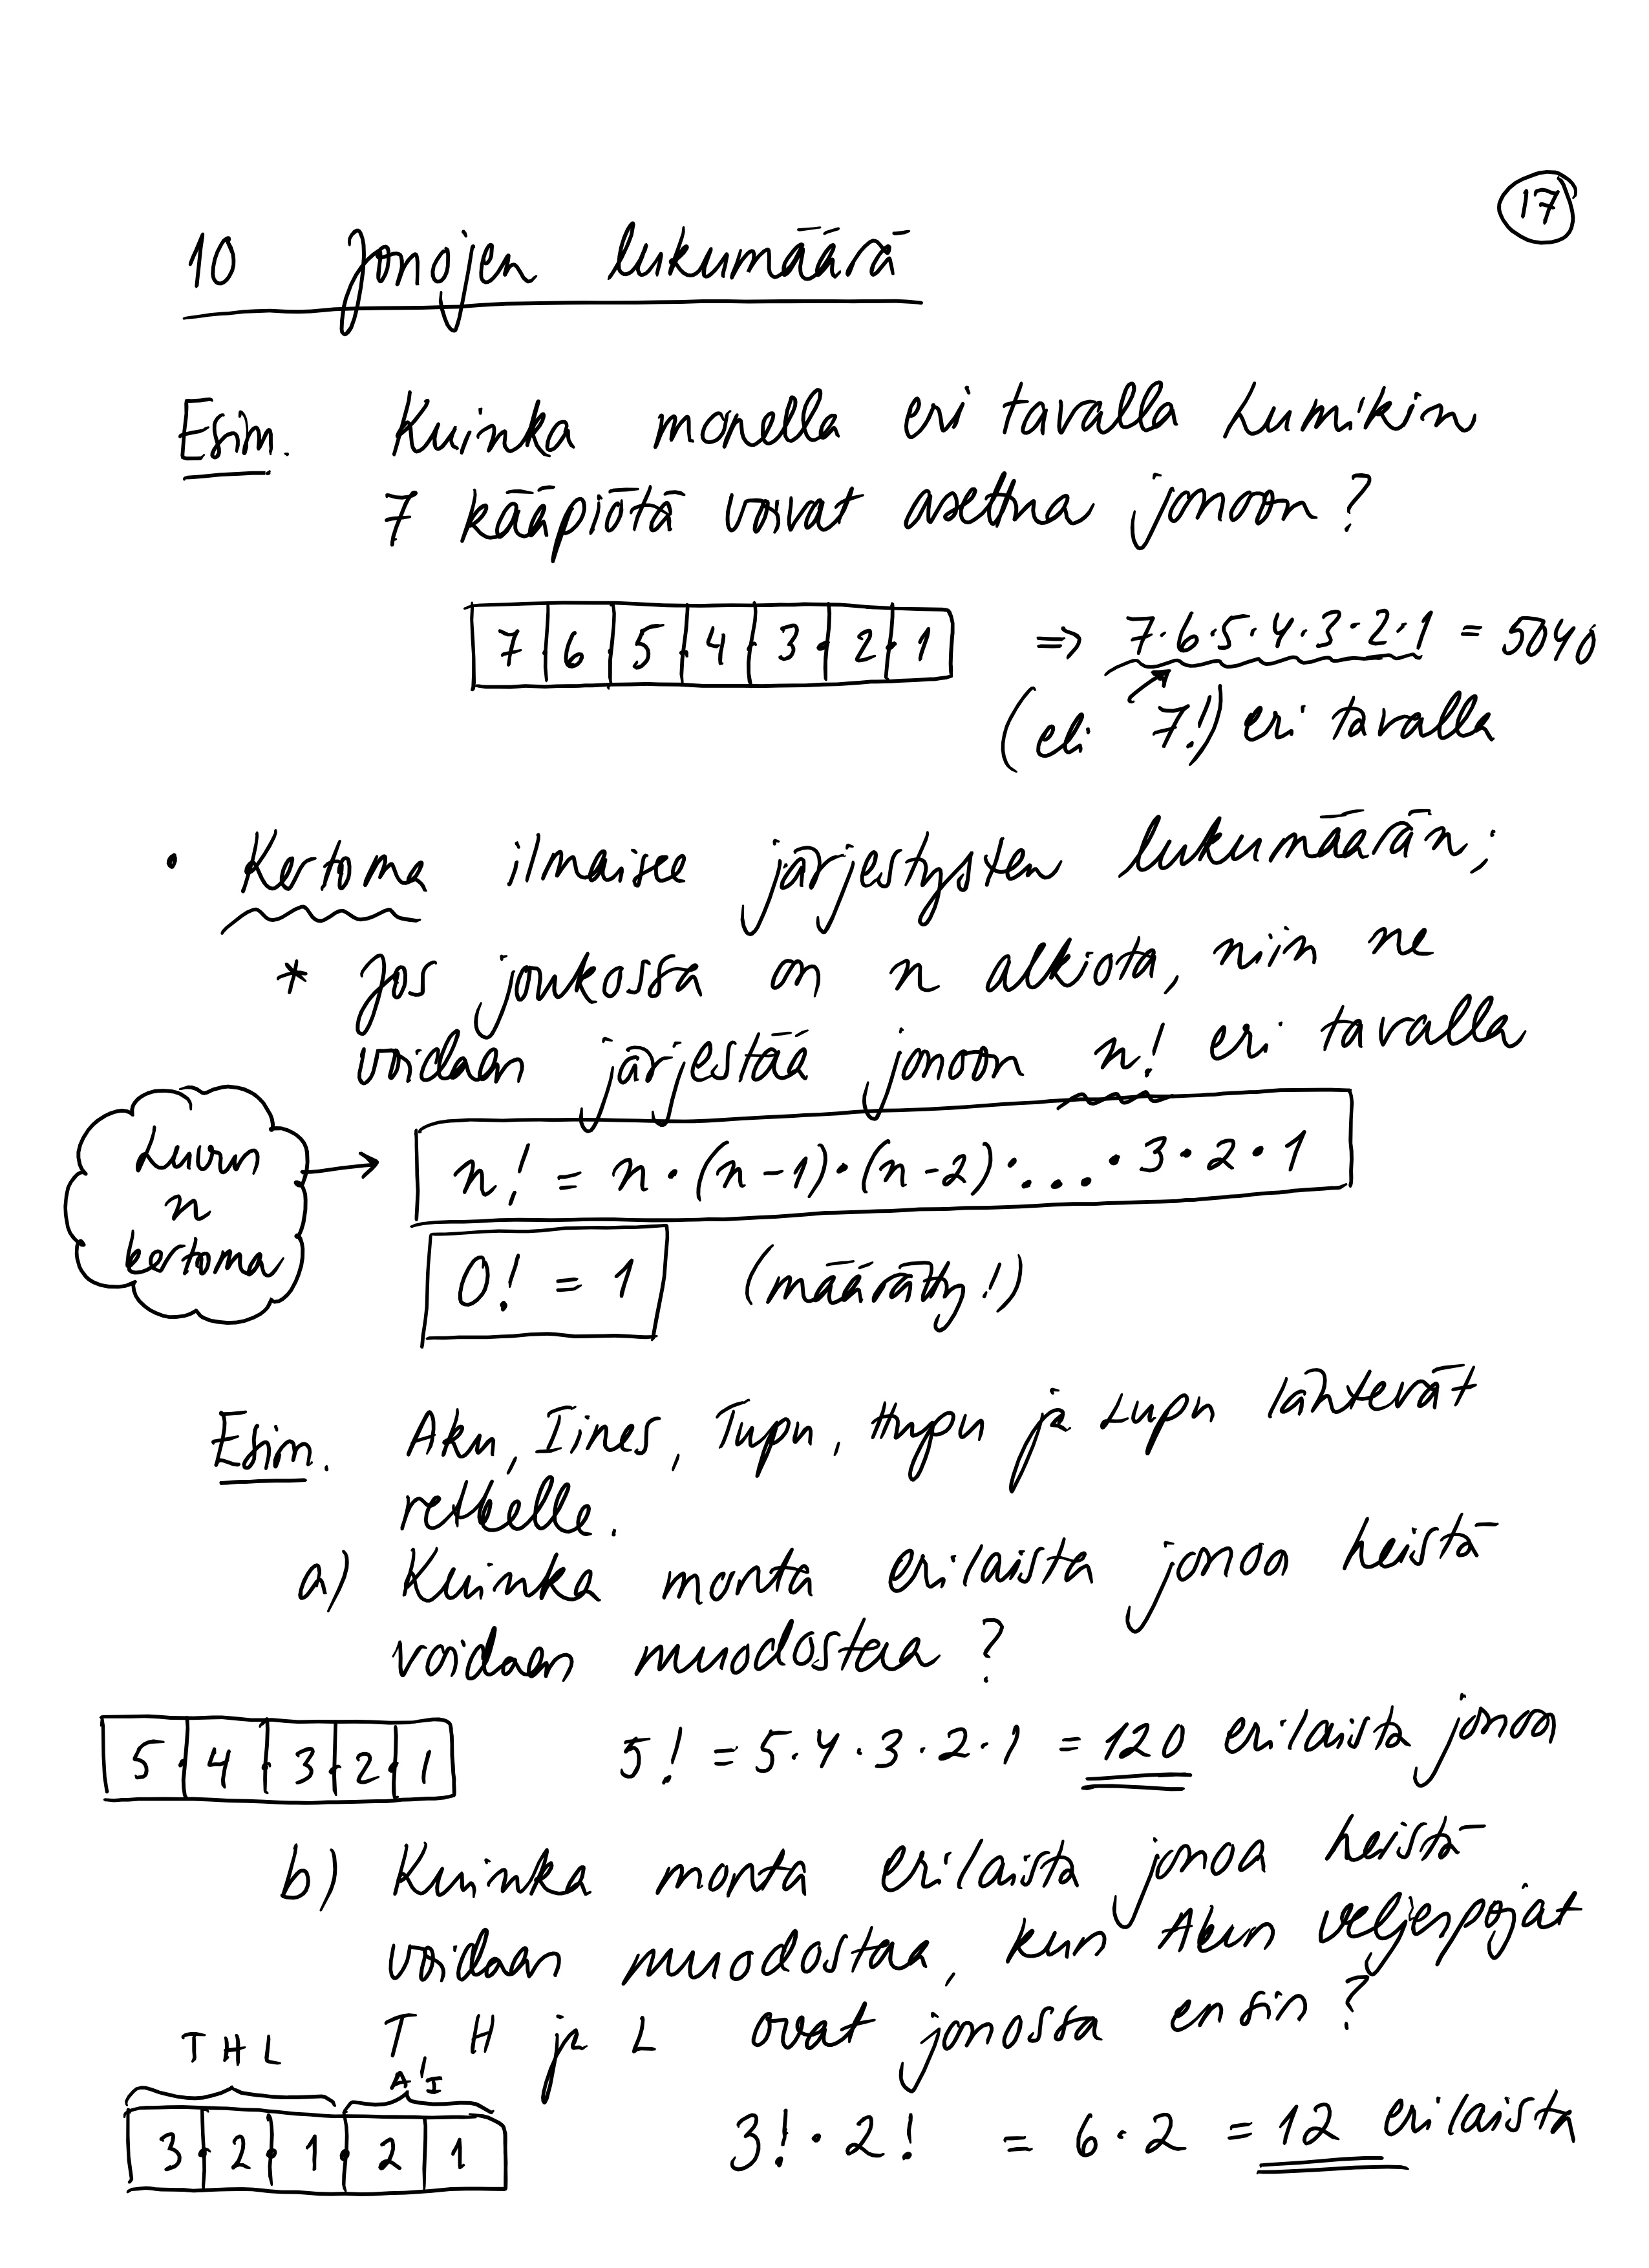 17
10 Jonojen lukumäärä
Esim. Kuinka monella eri tavalla Lumikin
7 kääpiötä voivat asettua jonoon?
7 · 6 · 5 · 4 · 3 · 2 · 1 ⇒ 7·6·5·4·3·2·1 = 5040
(eli 7!) eri tavalla
• Kertoma ilmaisee järjestysten lukumäärän;
* Jos joukossa on n alkiota, niin ne
voidaan järjestää jonoon n! eri tavalla
Luvun
n
kertoma
→ n! = n·(n-1)·(n-2)·...·3·2·1
0! = 1 (määrätty!)
Esim. Aku, Iines, Tupu, Hupu ja Lupu lähtevät
retkelle.
a) Kuinka monta erilaista jonoa heistä
voidaan muodostaa?
5 · 4 · 3 · 2 · 1 5! = 5·4·3·2·1 = 120 erilaista jonoa
b) Kuinka monta erilaista jonoa heistä
voidaan muodostaa, kun Akun veljenpojat
T, H ja L ovat jonossa ensin?
T H L A I
3 · 2 · 1 · 2 1 3! · 2! = 6 · 2 = 12 erilaista